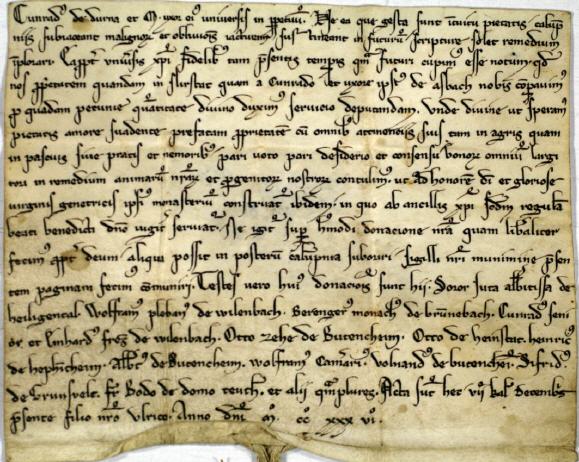 Cunrad⁹ de durna et M· uxor ei⁹ universis in ppetuū. Ne ea que gesta sunt ituitu pietatis calūp
niis subiaceant malignor et oblivionis iacturam sustineant in futurū scripture solet remedium
īplorari. univsis xpi fidelib⁹ tam psentis tempis qm futuri cupimus esse notum qd
nos ppetatem quandam in quam a Cunrado et uxore ipsi⁹ de asbach nobis cōpavim⁹
p quadam pecunie quātitate divino duxim⁹ servicio deputandam. Unde divine ut speram⁹
pietatis amore suadente prefatam pprietatē cū omnib⁹ attinenciis suis tam in agris quam
in pascuis sive pratis et nemorib⁹ pari voto pari desiderio et consensu bonor omniū largi
tori in remedium animarū nrar et pgenitor nostror contulim⁹. ut ad honorē di et gloriose
virginis genetricis ipsi⁹ monasteriū construat ibidem. in quo ab ancillis xpi scdm regulā
beati benedicti dno iugit serviat. Ne igit sup hmodi donacione nra quam libalicer
fecim⁹ ppt deum aliqua possit in posterū calūpnia suboriri. sigilli nri munimine psen
tem paginam fecim⁹ cōmuniri. Testes vero hui⁹ donacionis sunt hii. Soror Iuta abbtissa de
heiligental. Wolfram⁹ pleban⁹ de wilenbach. Berenger⁹ monach⁹ de brunebach. Cunrad⁹ seni
or et Einhard⁹ frēs de wilenbach. Otto Zehe de Butencheim. Otto de heinstat. heinric⁹
de hephicheim. Albt⁹ de Butencheim. Wolfram⁹ Camari⁹. Volnand⁹ de butenchei. Sifrid⁹
de brunsvelt. Fr Bodo de domo teuth. et alii qm plures. Acta sūt hec vii kal decembr
psente filio nro Ulrico. Anno dni m. cc xxx vi.